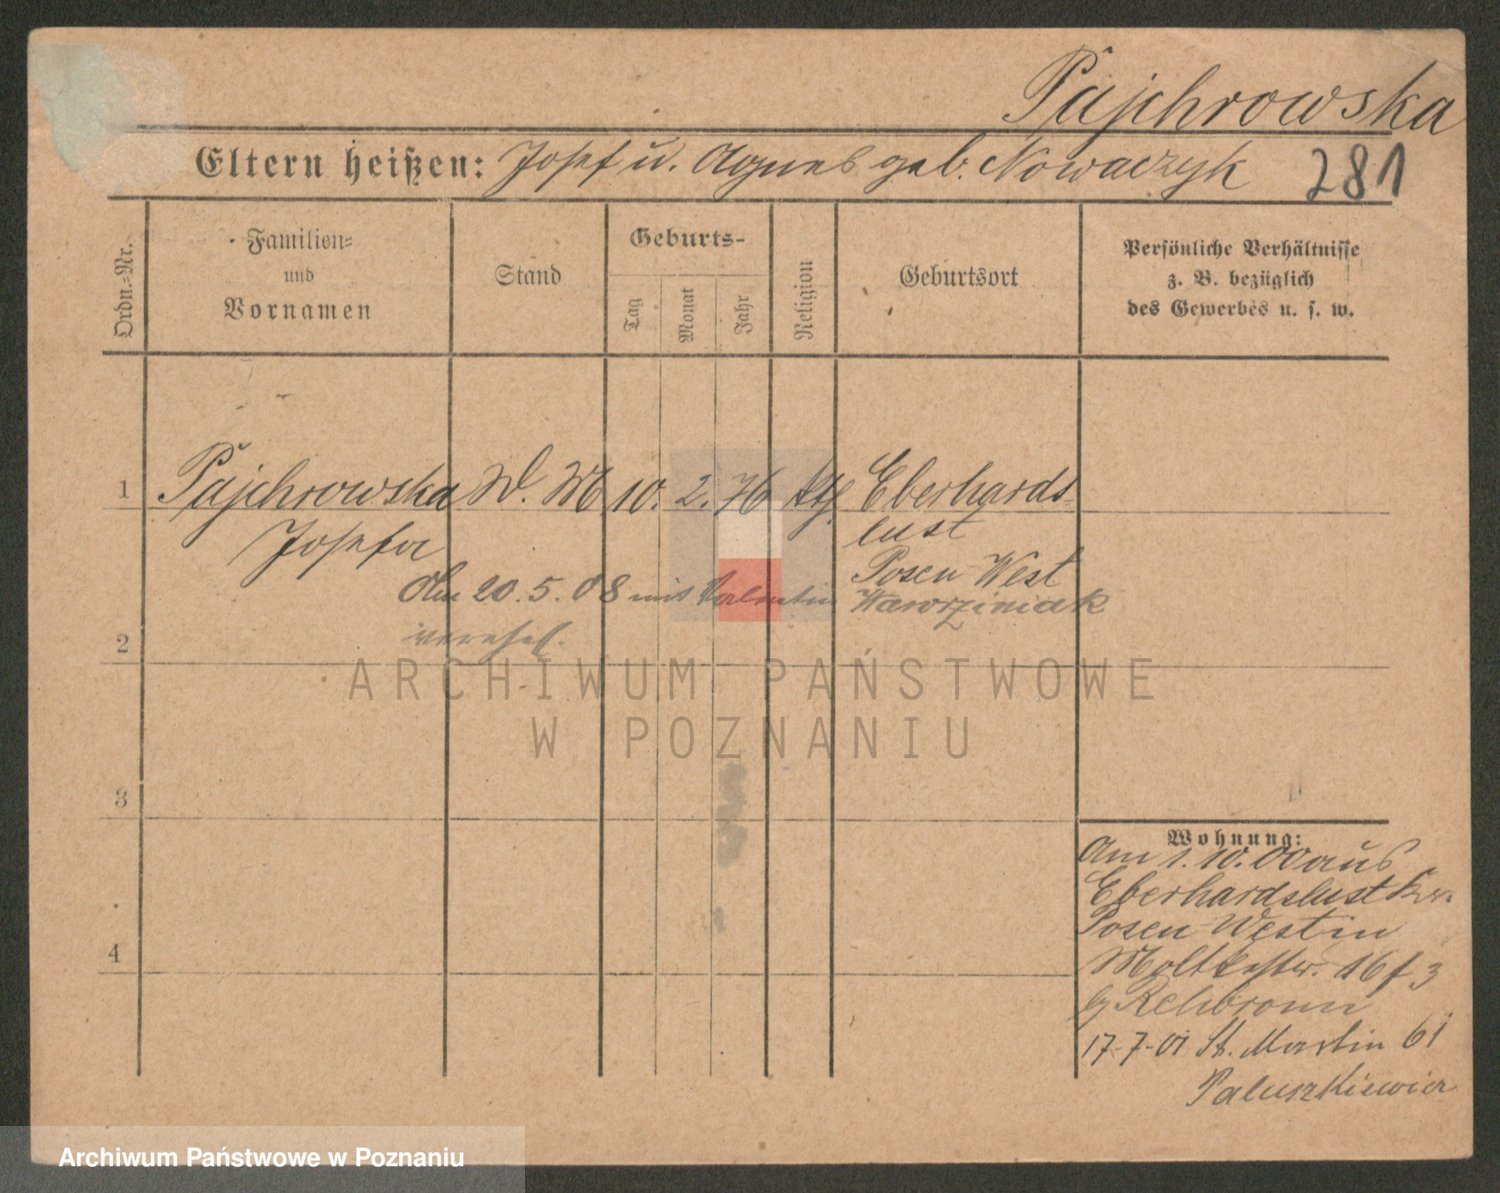 Pajchrowska
Eltern heißen: Josef u. Agnes geb. Nowaczyk 281
Ordn.-Nr.
Familien-
und
Vornamen
Stand
Geburts-
Tag
Monat
Jahr
Religion
Geburtsort
Persönliche Verhältnisse
z. B. bezüglich
des Gewerbes u. s. w.
1 Pajchrowska D. M 10. 2. 76 kth. Eberhards-
Josefa lust
Posen West
Am 20.5.08 mit Valentin Wawrziniak
verehel.
2
ARCHIWUM PAŃSTWOWE
W POZNANIU
3
4
Wohnung:
Am 1.10.00 aus
Eberhardslust Kr.
Posen West in
Moltkestr. 16 f 3
17-7-01 St. Martin 61
Paluszkiewicz
Archiwum Państwowe w Poznaniu